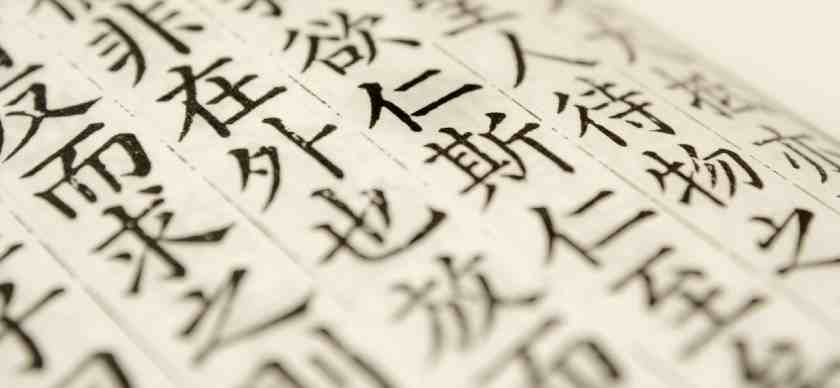 人待物之
欲仁斯仁至
非在外也放而
反而求之則